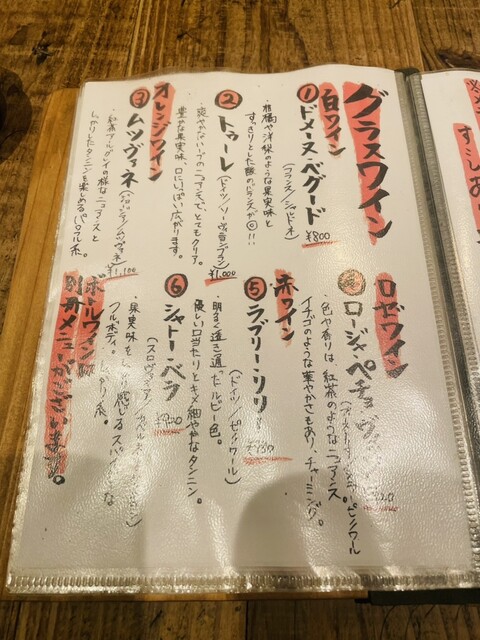 グラスワイン
白ワイン
① ドメーヌ・ベグード
(フランス/シャルドネ)
¥800
柑橘や洋梨のような果実味と
すっきりとした酸のバランスが◎!!
② トゥーレ
¥1,000
爽やかなハーブのニュアンスで、とてもクリア。
豊かな果実味、口いっぱい広がります。
オレンジワイン
③ ムツヴァネ
¥1,100
紅茶アールグレイの様なニュアンスと
しっかりしたタンニンを楽しめるパワフル系。
ロゼワイン
④ ロージャ・ペチョ
色や香りは紅茶のようなニュアンス
イチゴのような華やかさもあり、チャーミング
赤ワイン
⑤ ラブリー・リリー
(ドイツ/ピノノワール)
明るく透き通ったルビー色。
優しい口当たりとキメ細やかなタンニン。
⑥ シャトー・ベラ
果実味をしっかり感じるスパイシーな
フルボディ。
ボトルワインは
別冊メニューがございます。
すこしお